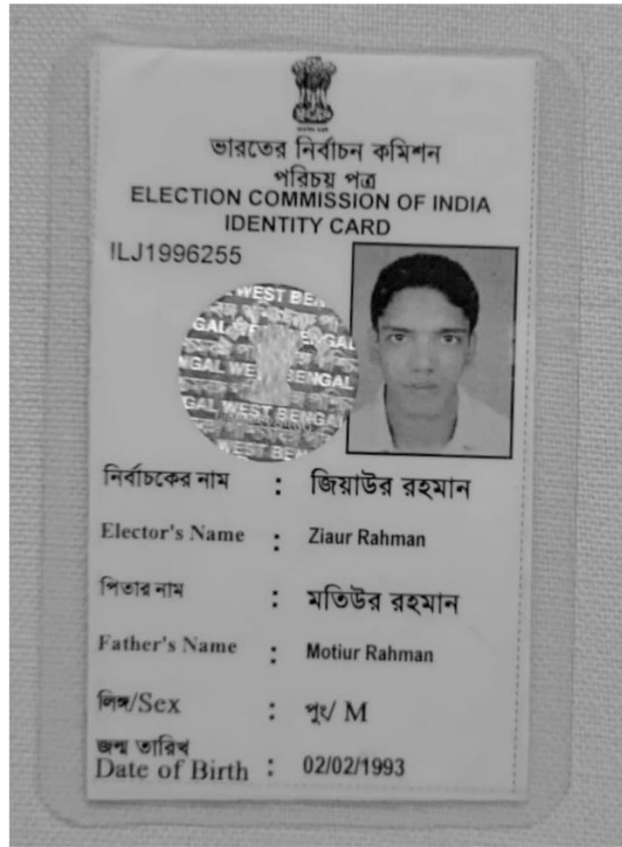 ভারতের নির্বাচন কমিশন
পরিচয় পত্র
ELECTION COMMISSION OF INDIA
IDENTITY CARD
ILJ1996255
WEST BEN
GAL
ENGAL
NGAL WE
BENGAL
GAL WEST BENGA
WEST BE
নির্বাচকের নাম : জিয়াউর রহমান
Elector's Name : Ziaur Rahman
পিতার নাম : মতিউর রহমান
Father's Name : Motiur Rahman
লিঙ্গ/Sex : পুং/ M
জন্ম তারিখ
Date of Birth : 02/02/1993